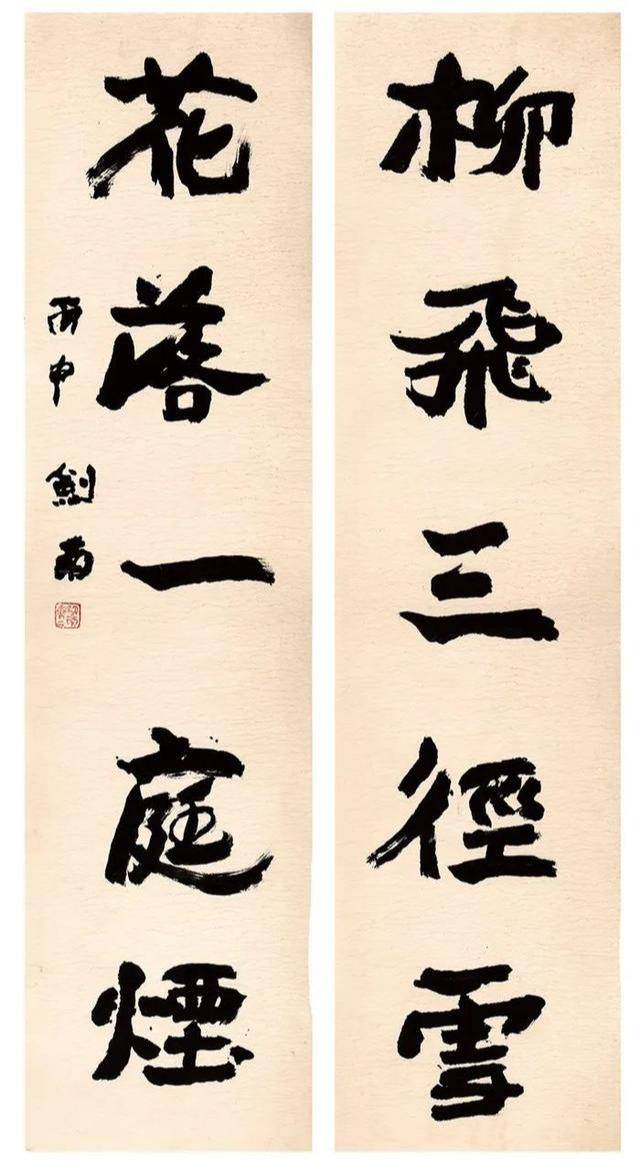 柳飛三徑雪
花落一庭煙
丙申 劍南